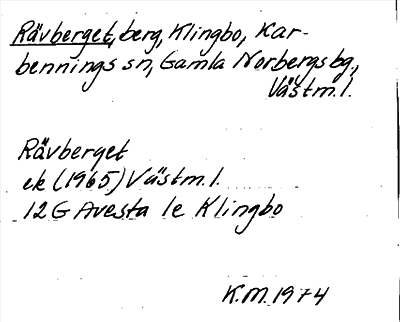 Rävberget, berg, Klingbo, Kar-
bennings sn, Gamla Norbergsbg,
Västm. l.
Rävberget
ek (1965) Västm. l.
12 G Avesta 1e Klingbo
K.M. 1974